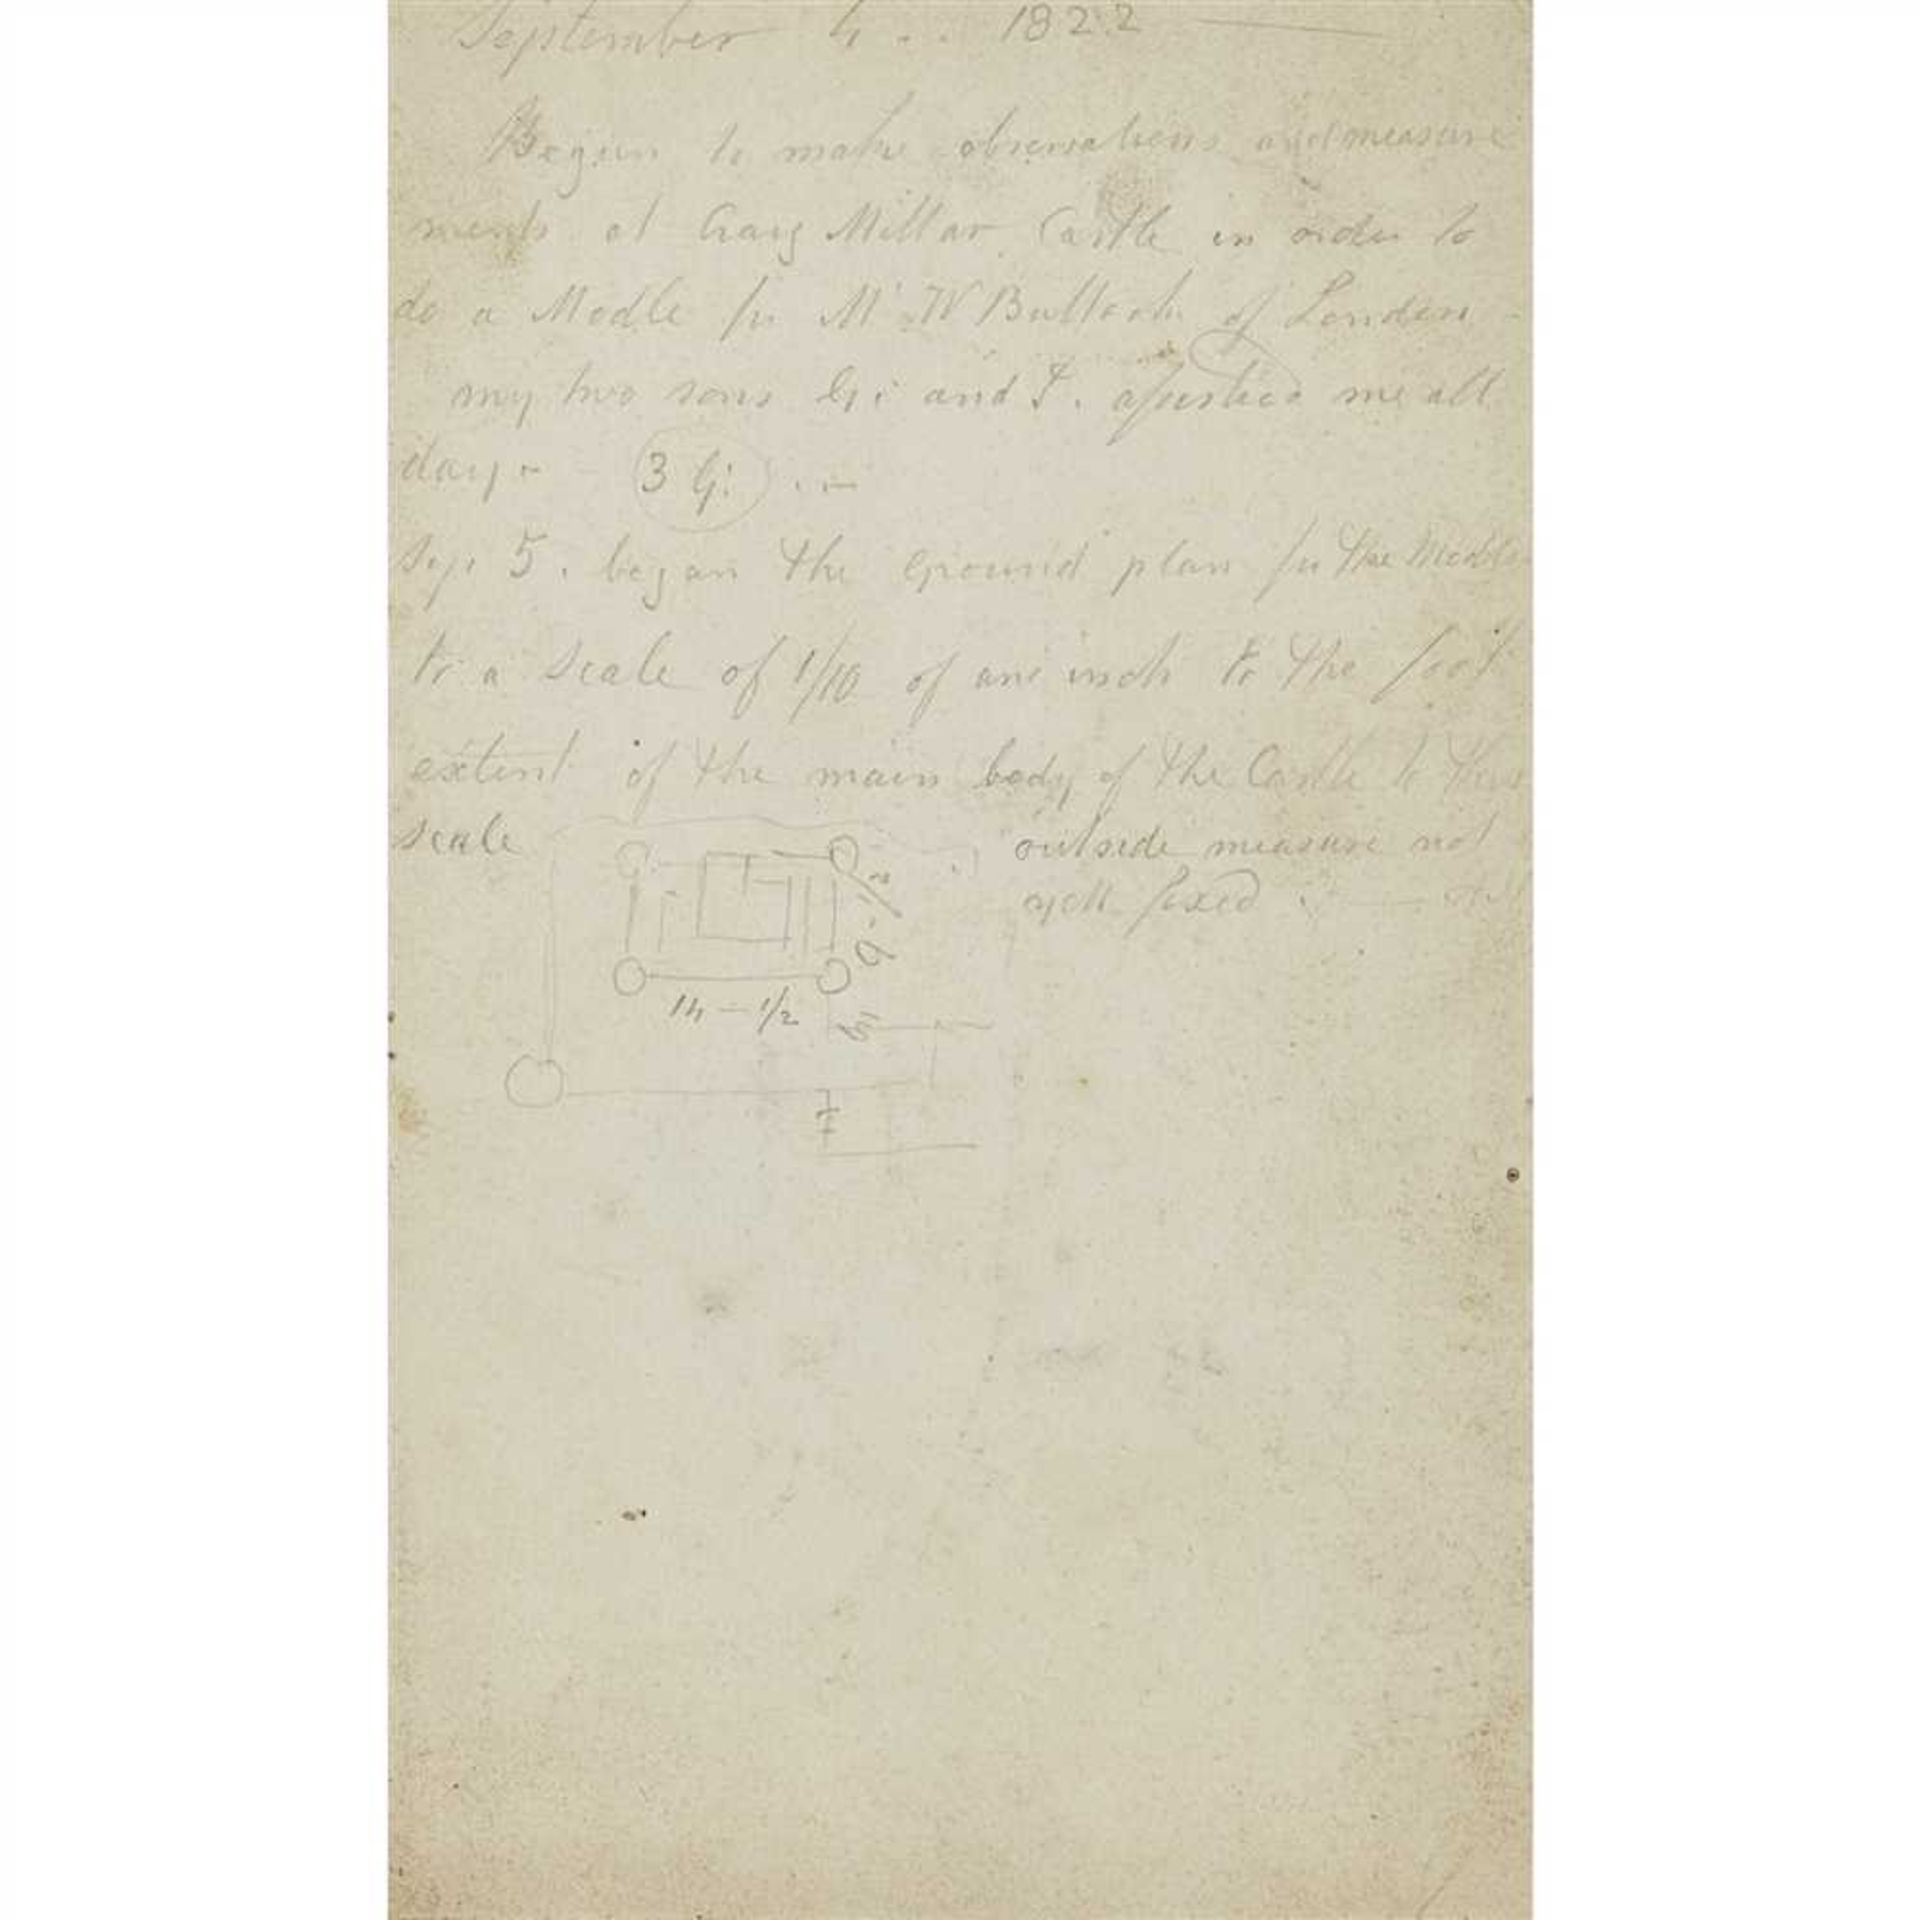 September 4 . . 1822
Begun to make observations and measure
ments at Craig Millar Castle in order to
do a Modle for Mr W Bullock of London
my two sons G: and I. assisted me all
day - 3 G: . -
Sep 5. began the Ground plan for the Modle
to a scale of 1/10 of one inch to the foot
extent of the main body of the Castle to this
scale
outside measure not
yett fixed
9 - 1/2
14 - 1/2
7